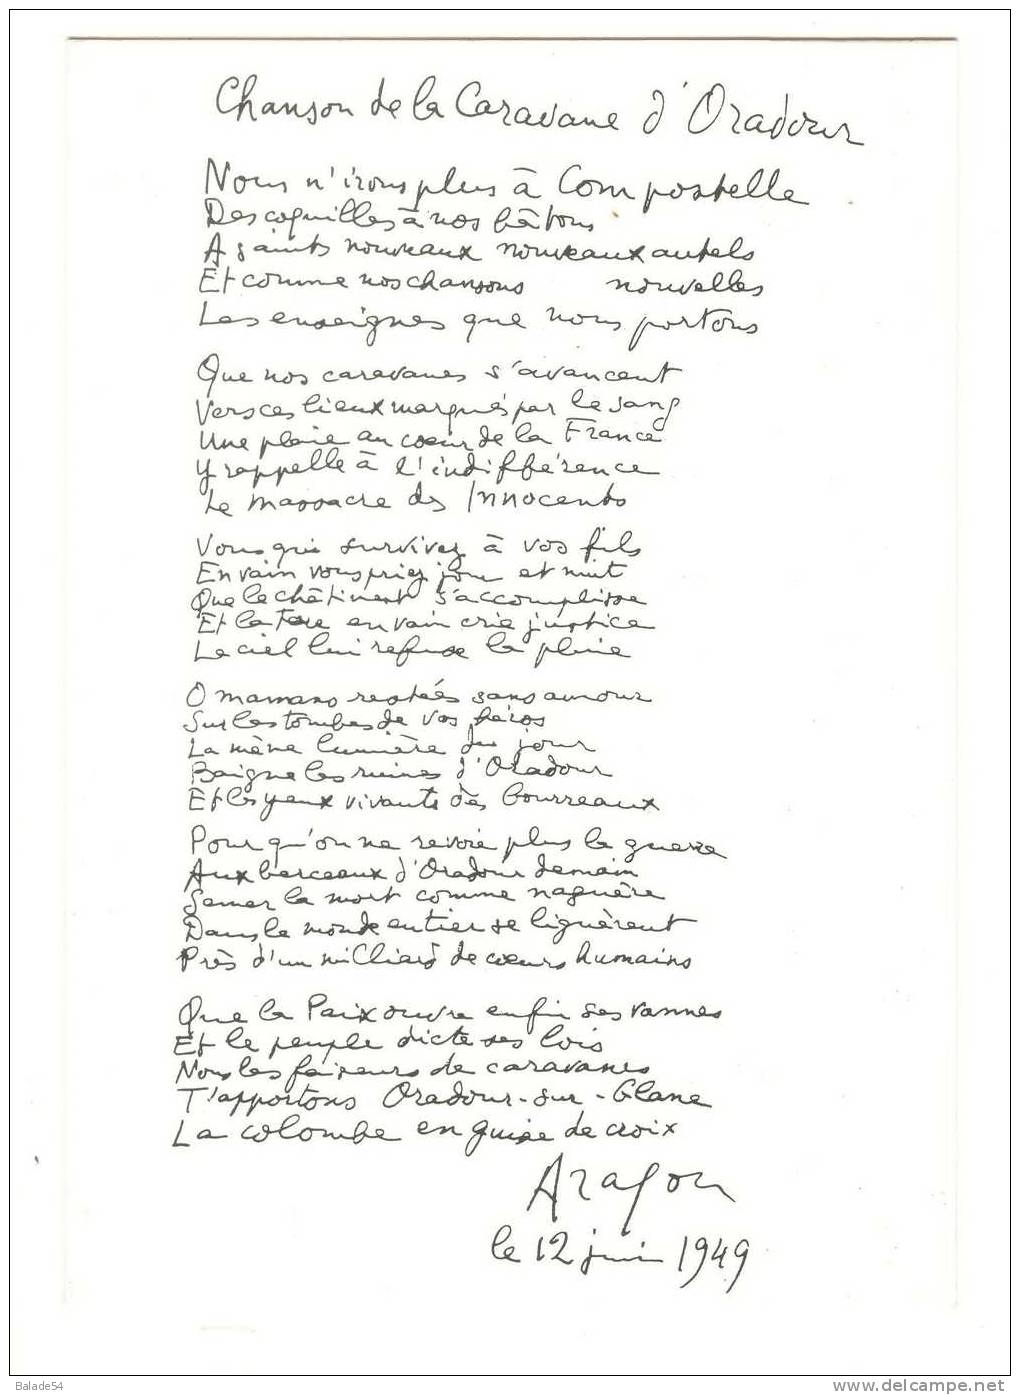 Chanson de la Caravane d'Oradour
Nous n'irons plus à Compostelle
Des coquilles à nos bâtons
A saints nouveaux nouveaux autels
Et comme nos chansons nouvelles
Les enseignes que nous portons
Que nos caravanes s'avancent
Vers ces lieux marqués par le sang
Une plaie au coeur de la France
Y rappelle à l'indifférence
Le massacre des Innocents
Vous qui survivez à vos fils
En vain vous priez jour et nuit
Que le châtiment s'accomplisse
Et la terre en vain crie justice
Le ciel lui refuse la pluie
O mamans restées sans amour
Sur les tombes de vos héros
La même lumière du jour
Baigne les ruines d'Oradour
Et les yeux vivants des bourreaux
Pour qu'on ne revoie plus la guerre
Aux berceaux d'Oradour demain
Semer la mort comme naguère
Dans le monde entier se liguèrent
Près d'un milliard de coeurs humains
Que la Paix ouvre enfin ses vannes
Et le peuple dicte ses lois
Nous les faiseurs de caravanes
T'apportons Oradour-sur-Glane
La colombe en guise de croix
Aragon
le 12 juin 1949
Balade54
www.delcampe.net